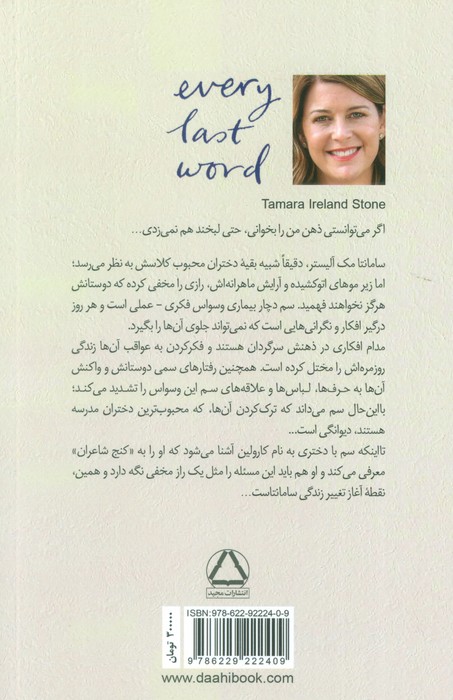 every
last
word
Tamara Ireland Stone
اگر می‌توانستی ذهن من را بخوانی، حتی لبخند هم نمی‌زدی...
سامانتا مک آلیستر، دقیقاً شبیه بقیهٔ دختران محبوب کلاسش به نظر می‌رسد؛
اما زیر موهای اتوکشیده و آرایش ماهرانه‌اش، رازی را مخفی کرده که دوستانش
هرگز نخواهند فهمید. سم دچار بیماری وسواس فکری - عملی است و هر روز
درگیر افکار و نگرانی‌هایی است که نمی‌تواند جلوی آن‌ها را بگیرد.
مدام افکاری در ذهنش سرگردان هستند و فکرکردن به عواقب آن‌ها زندگی
روزمره‌اش را مختل کرده است. همچنین رفتارهای سمی دوستانش و واکنش
آن‌ها به حرف‌ها، لباس‌ها و علاقه‌های سم این وسواس را تشدید می‌کند؛
بااین‌حال سم می‌داند که ترک‌کردن آن‌ها، که محبوب‌ترین دختران مدرسه
هستند، دیوانگی است...
تااینکه سم با دختری به نام کارولین آشنا می‌شود که او را به «کنج شاعران»
معرفی می‌کند و او هم باید این مسئله را مثل یک راز مخفی نگه دارد و همین،
نقطهٔ آغاز تغییر زندگی سامانتاست...
انتشارات مجید
ISBN:978-622-92224-0-9
۳۰۰۰۰۰ تومان
9 786229 222409
www.daahibook.com